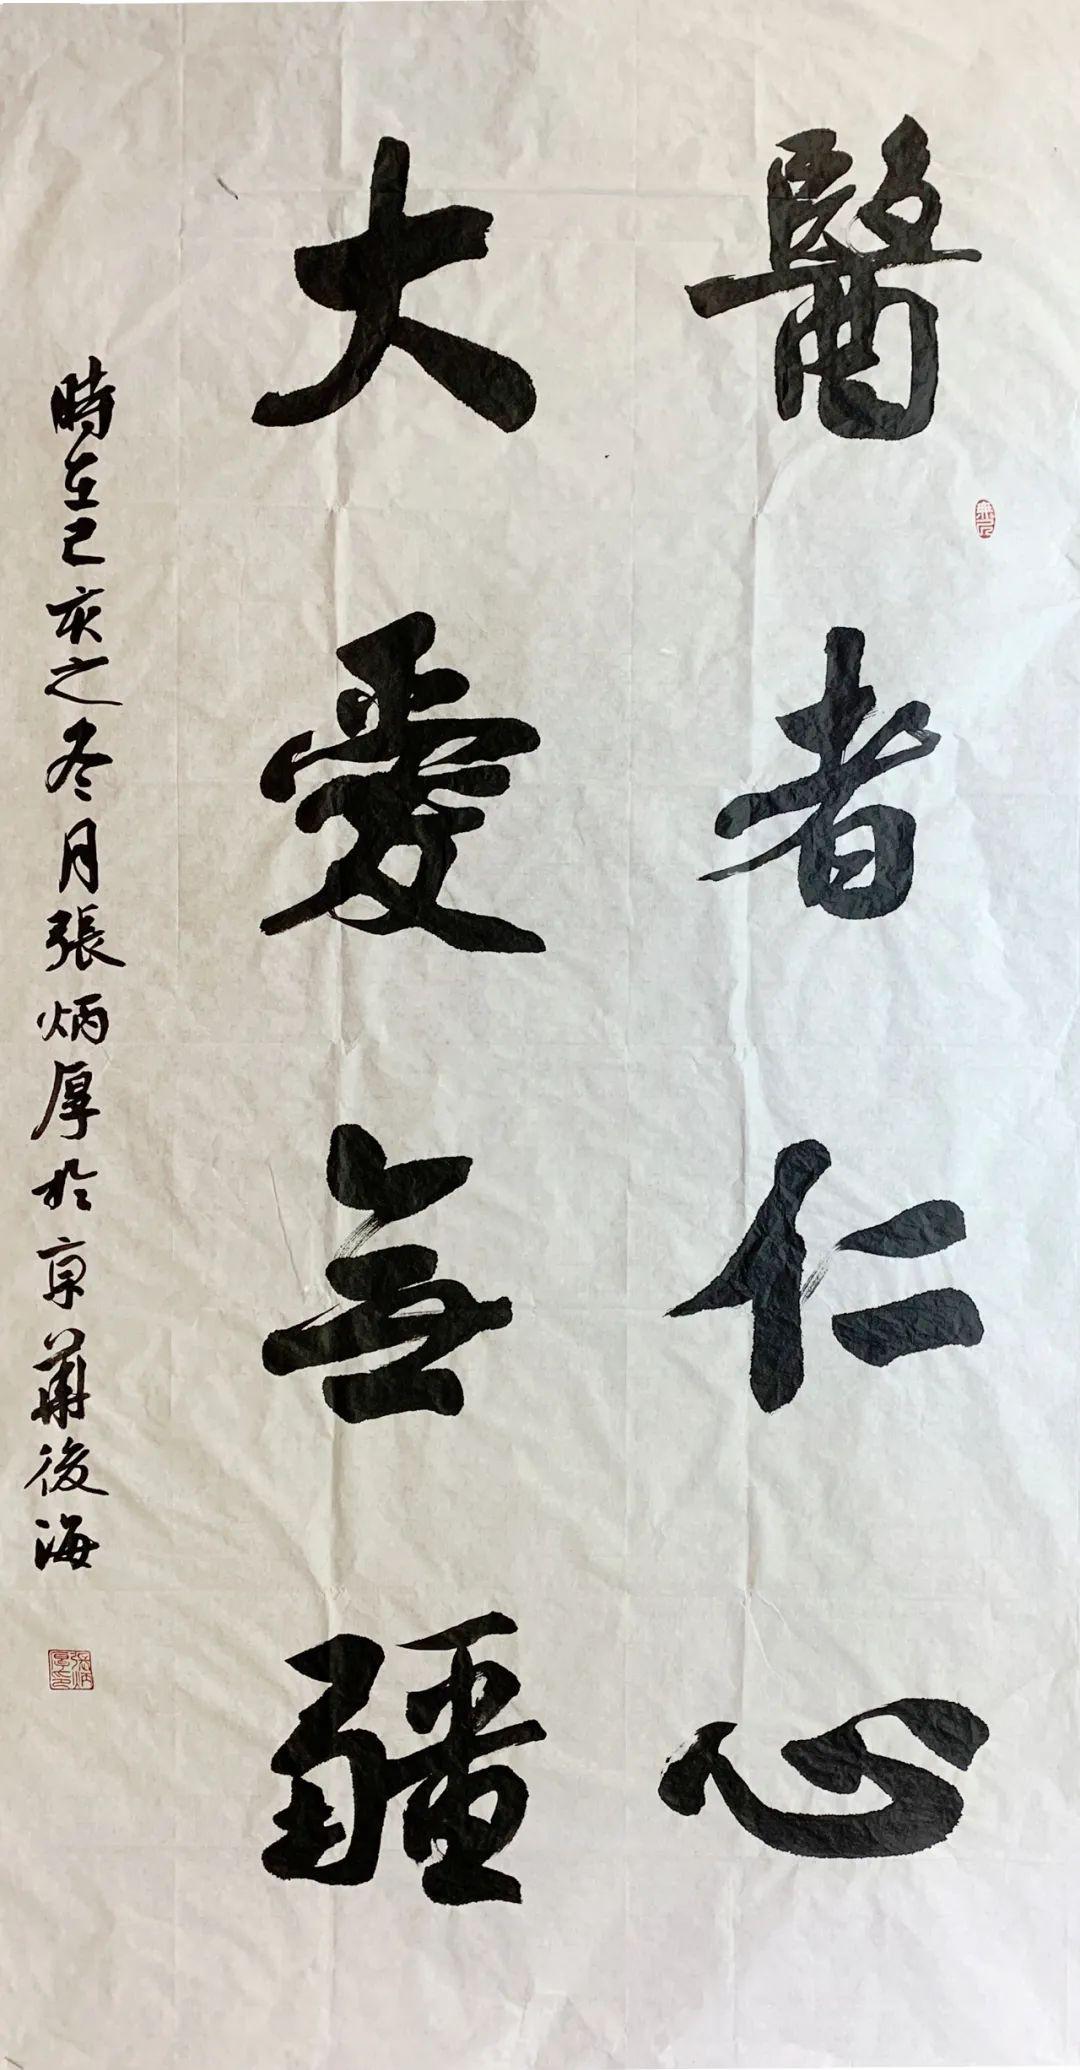 醫者仁心
大愛無疆
時在己亥之冬月張炳厚於京華後海
張炳厚印